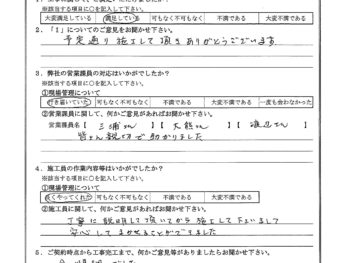 ※該当する項目に○を記入して下さい。
大変満足している 満足している 可も無く不可も無く 不満である 大変不満である
2．「1」についてのご意見をお聞かせ下さい。
予定通り施工して頂きありがとうございます
3．弊社の営業課員の対応はいかがでしたか？
※該当する項目に○を記入して下さい。
①現場管理について
行き届いていた 可も無く不可も無く 不満である 大変不満である 一度も会わなかった
②営業課員に関して、何かご意見があればお聞かせ下さい。
営業課員名【 三浦さん 】【 大熊さん 】【 渡辺さん 】
皆さん親切で助かりました
4．施工員の作業内容等はいかがでしたか？
※該当する項目に○を記入して下さい。
①現場管理について
良くやってくれた 可も無く不可も無く 不満である 大変不満である
②施工員に関して、何かご意見があればお聞かせ下さい。
丁寧に説明して頂いてから施工して下さいまして
安心してまかせることができました
5．ご契約時点から工事完工まで、何かご意見等がありましたらお聞かせ下さい。